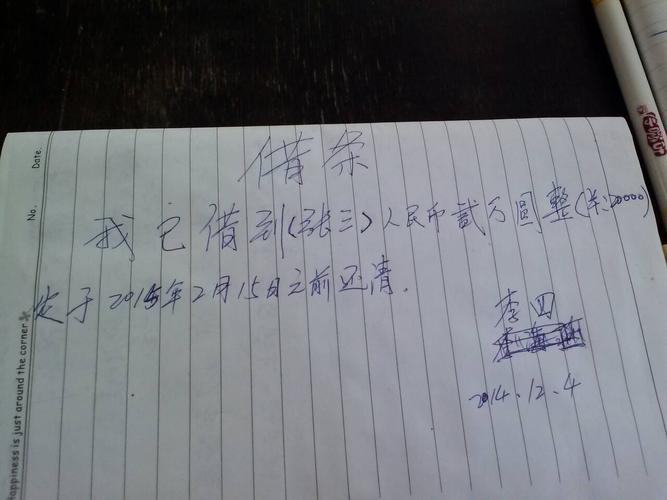 借条
我已借到(张三)人民币贰万圆整(羊:20000)
定于2015年2月15日之前还清.
李四
2014.12.4
No.
Date.
Happiness is just around the corner